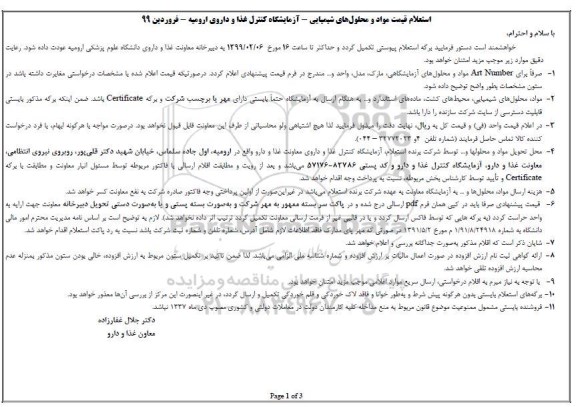 استعلام قیمت مواد و محلول‌های شیمیایی – آزمایشگاه کنترل غذا و داروی ارومیه – فروردین 99
با سلام و احترام،
خواهشمند است دستور فرمایید برگه استعلام پیوستی تکمیل گردد و حداکثر تا ساعت 16 مورخ 1399/02/06 به دبیرخانه معاونت غذا و داروی دانشگاه علوم پزشکی ارومیه عودت داده شود. رعایت
دقیق موارد زیر موجب مزید امتنان خواهد بود.
1- صرفاً برای Art Number مواد و محلول‌های آزمایشگاهی، مارک، مدل، واحد و... مندرج در فرم قیمت پیشنهادی اعلام گردد. درصورتیکه قیمت اعلام شده با مشخصات درخواستی مغایرت داشته باشد در
ستون مشخصات بطور واضح توضیح داده شود.
2- مواد، محلول‌های شیمیایی، محیط‌های کشت، ماده‌های استاندارد و... به هنگام ارسال به آزمایشگاه حتماً بایستی دارای مهر یا برچسب شرکت و برگه Certificate باشد. ضمن اینکه برگه مذکور بایستی
قابلیت دسترسی از سایت شرکت سازنده را دارا باشد.
3- در اعلام قیمت واحد (فی) و قیمت کل به ریال، نهایت دقت را مبذول فرمایید. لذا هیچ اشتباهی ولو محاسباتی از طرف این معاونت قابل قبول نخواهد بود. درصورت مواجه با هرگونه ابهام، با فرد درخواست
کننده کالا تماس حاصل فرمایند (شماره تلفن
4- محل تحویل مواد و محلولها و... توسط شرکت برنده استعلام، آزمایشگاه کنترل غذا و داروی معاونت غذا و دارو واقع در ارومیه، اول جاده سلماس، خیابان شهید دکتر قلی‌پور، روبروی نیروی انتظامی،
معاونت غذا و دارو، آزمایشگاه کنترل غذا و دارو و کد پستی 83786-57176 می‌باشد و بعد از رؤیت و مطابقت اقلام ارسالی با فاکتور مربوطه توسط مسئول انبار معاونت و مطابقت با برگه
Certificate و تأیید توسط کارشناس بخش مربوطه، نسبت به پرداخت وجه اقدام خواهد شد.
5- هزینه ارسال مواد، محلول‌ها و ... به آزمایشگاه معاونت به عهده شرکت برنده استعلام می‌باشد در غیر این‌صورت از اولین پرداختی وجه فاکتور صادره شرکت به نفع معاونت کسر خواهد شد.
6- قیمت پیشنهادی صرفا باید در کپی همان فرم pdf ارسالی درج شده و در پاکت سر بسته ممهور به مهر شرکت و به‌صورت بسته پستی و یا به‌صورت دستی تحویل دبیرخانه معاونت جهت ارایه به
واحد حراست گردد (به برگه هایی که توسط فاکس ارسال گردد و یا در قالبی غیر از فرمت ارسالی معاونت تکمیل گردد ترتیب اثر داده نخواهد شد). لازم به توضیح است بر اساس نامه مدیریت محترم امور مالی
دانشگاه به شماره
7- شایان ذکر است که اقلام مذکور به‌صورت جداگانه بررسی و اعلام خواهد شد.
8- ارائه گواهی ثبت نام ارزش افزوده در صورت اعمال مالیات بر ارزش افزوده و شماره شناسه ملی الزامی می‌باشد. لذا ضمن تاکید بر تکمیل ستون مربوط به ارزش افزوده، خالی بودن ستون مذکور بمنزله عدم
محاسبه ارزش افزوده تلقی خواهد شد.
9- با توجه به نیاز مبرم به اقلام درخواستی، ارسال سریع موارد اعلامی موجب مزید امتنان خواهد بود.
10- برگه‌های استعلام بایستی بدون هرگونه پیش شرط و به‌طور خوانا و فاقد لاک خوردگی و قلم خوردگی تکمیل و ارسال گردد، در غیر اینصورت این مرکز از بررسی آن‌ها معذور خواهد بود.
11- فروشنده بایستی مشمول ممنوعیت موضوع قانون مربوط به منع مداخله کلیه کارمندان دولت در معاملات دولتی و کشوری مصوب دی ماه 1337 نباشد.
دکتر جلال غفارزاده
معاون غذا و دارو
Page 1 of 3